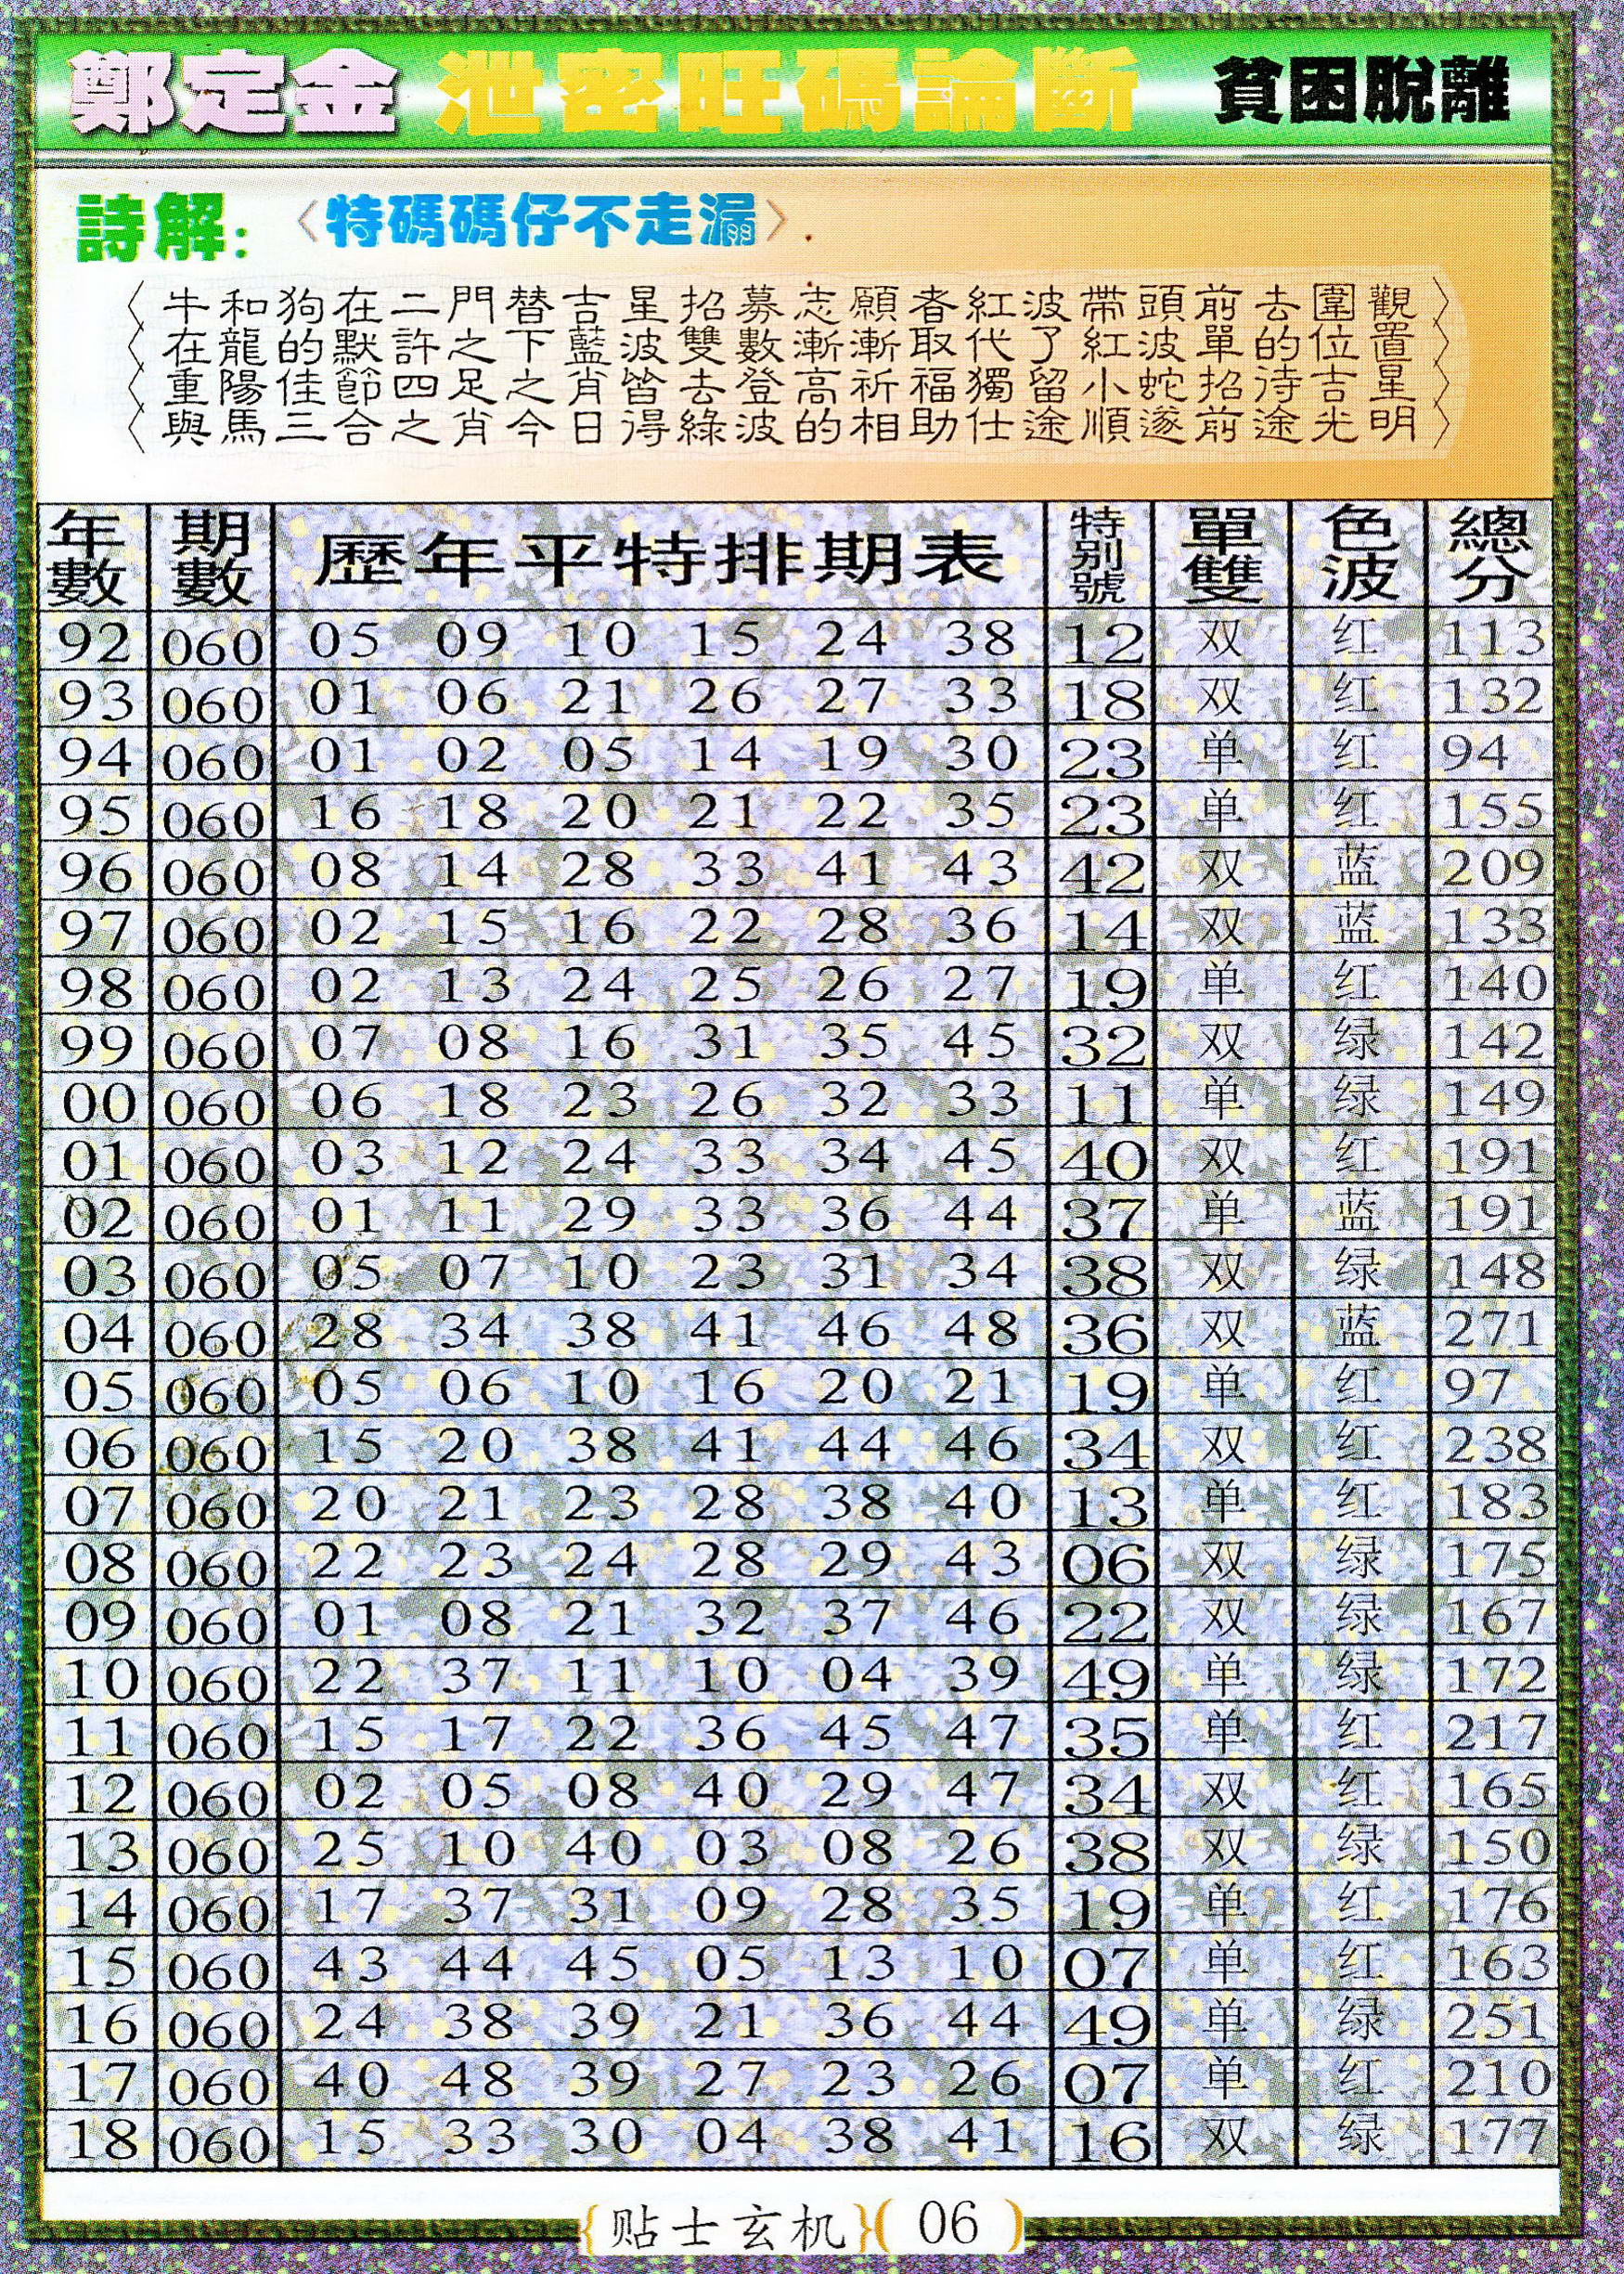 鄭定金 泄密旺碼論斷 貧困脫離
詩解：〈特碼碼仔不走漏〉
牛和狗在二門替吉星招募志願者紅波帶頭前去圍觀
在龍的默許之下藍波雙數漸漸取代了紅波單的位置
重陽佳節四足之肖皆去登高祈福獨留小蛇招待吉星
與馬三合之肖今日得綠波的相助仕途順遂前途光明
年數 期數 歷年平特排期表 特别號 單雙 色波 總分
92 060 05 09 10 15 24 38 12 双 红 113
93 060 01 06 21 26 27 33 18 双 红 132
94 060 01 02 05 14 19 30 23 单 红 94
95 060 16 18 20 21 22 35 23 单 红 155
96 060 08 14 28 33 41 43 42 双 蓝 209
97 060 02 15 16 22 28 36 14 双 蓝 133
98 060 02 13 24 25 26 27 19 单 红 140
99 060 07 08 16 31 35 45 32 双 绿 142
00 060 06 18 23 26 32 33 11 单 绿 149
01 060 03 12 24 33 34 45 40 双 红 191
02 060 01 11 29 33 36 44 37 单 蓝 191
03 060 05 07 10 23 31 34 38 双 绿 148
04 060 28 34 38 41 46 48 36 双 蓝 271
05 060 05 06 10 16 20 21 19 单 红 97
06 060 15 20 38 41 44 46 34 双 红 238
07 060 20 21 23 28 38 40 13 单 红 183
08 060 22 23 24 28 29 43 06 双 绿 175
09 060 01 08 21 32 37 46 22 双 绿 167
10 060 22 37 11 10 04 39 49 单 绿 172
11 060 15 17 22 36 45 47 35 单 红 217
12 060 02 05 08 40 29 47 34 双 红 165
13 060 25 10 40 03 08 26 38 双 绿 150
14 060 17 37 31 09 28 35 19 单 红 176
15 060 43 44 45 05 13 10 07 单 红 163
16 060 24 38 39 21 36 44 49 单 绿 251
17 060 40 48 39 27 23 26 07 单 红 210
18 060 15 33 30 04 38 41 16 双 绿 177
{贴士玄机}(06)